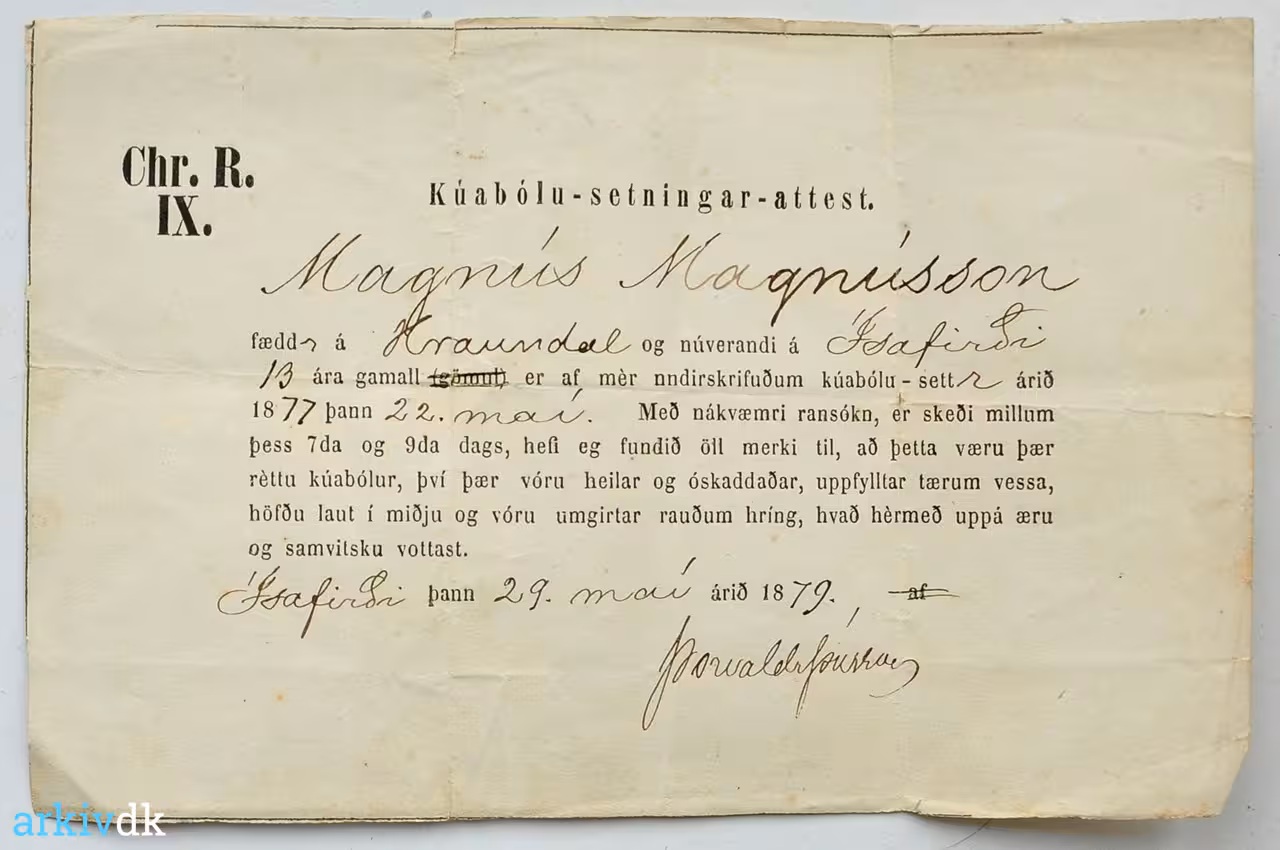 Chr. R.
IX.
Kúabólu-setningar-attest.
Magnús Magnússon
fæddr á Hraundal og núverandi á Ísafirði
13 ára gamall (gömul) er af mèr nndirskrifuðum kúabólu-settr árið
1877 þann 22. maí. Með nákvæmri ransókn, er skeði millum
þess 7da og 9da dags, hefi eg fundið öll merki til, að þetta væru þær
rèttu kúabólur, því þær vóru heilar og óskaddaðar, uppfylltar tærum vessa,
höfðu laut í miðju og vóru umgirtar rauðum hríng, hvað hèrmeð uppá æru
og samvitsku vottast.
Ísafirði þann 29. maí árið 1879. af
Þorvaldr Jónsson
arkivdk